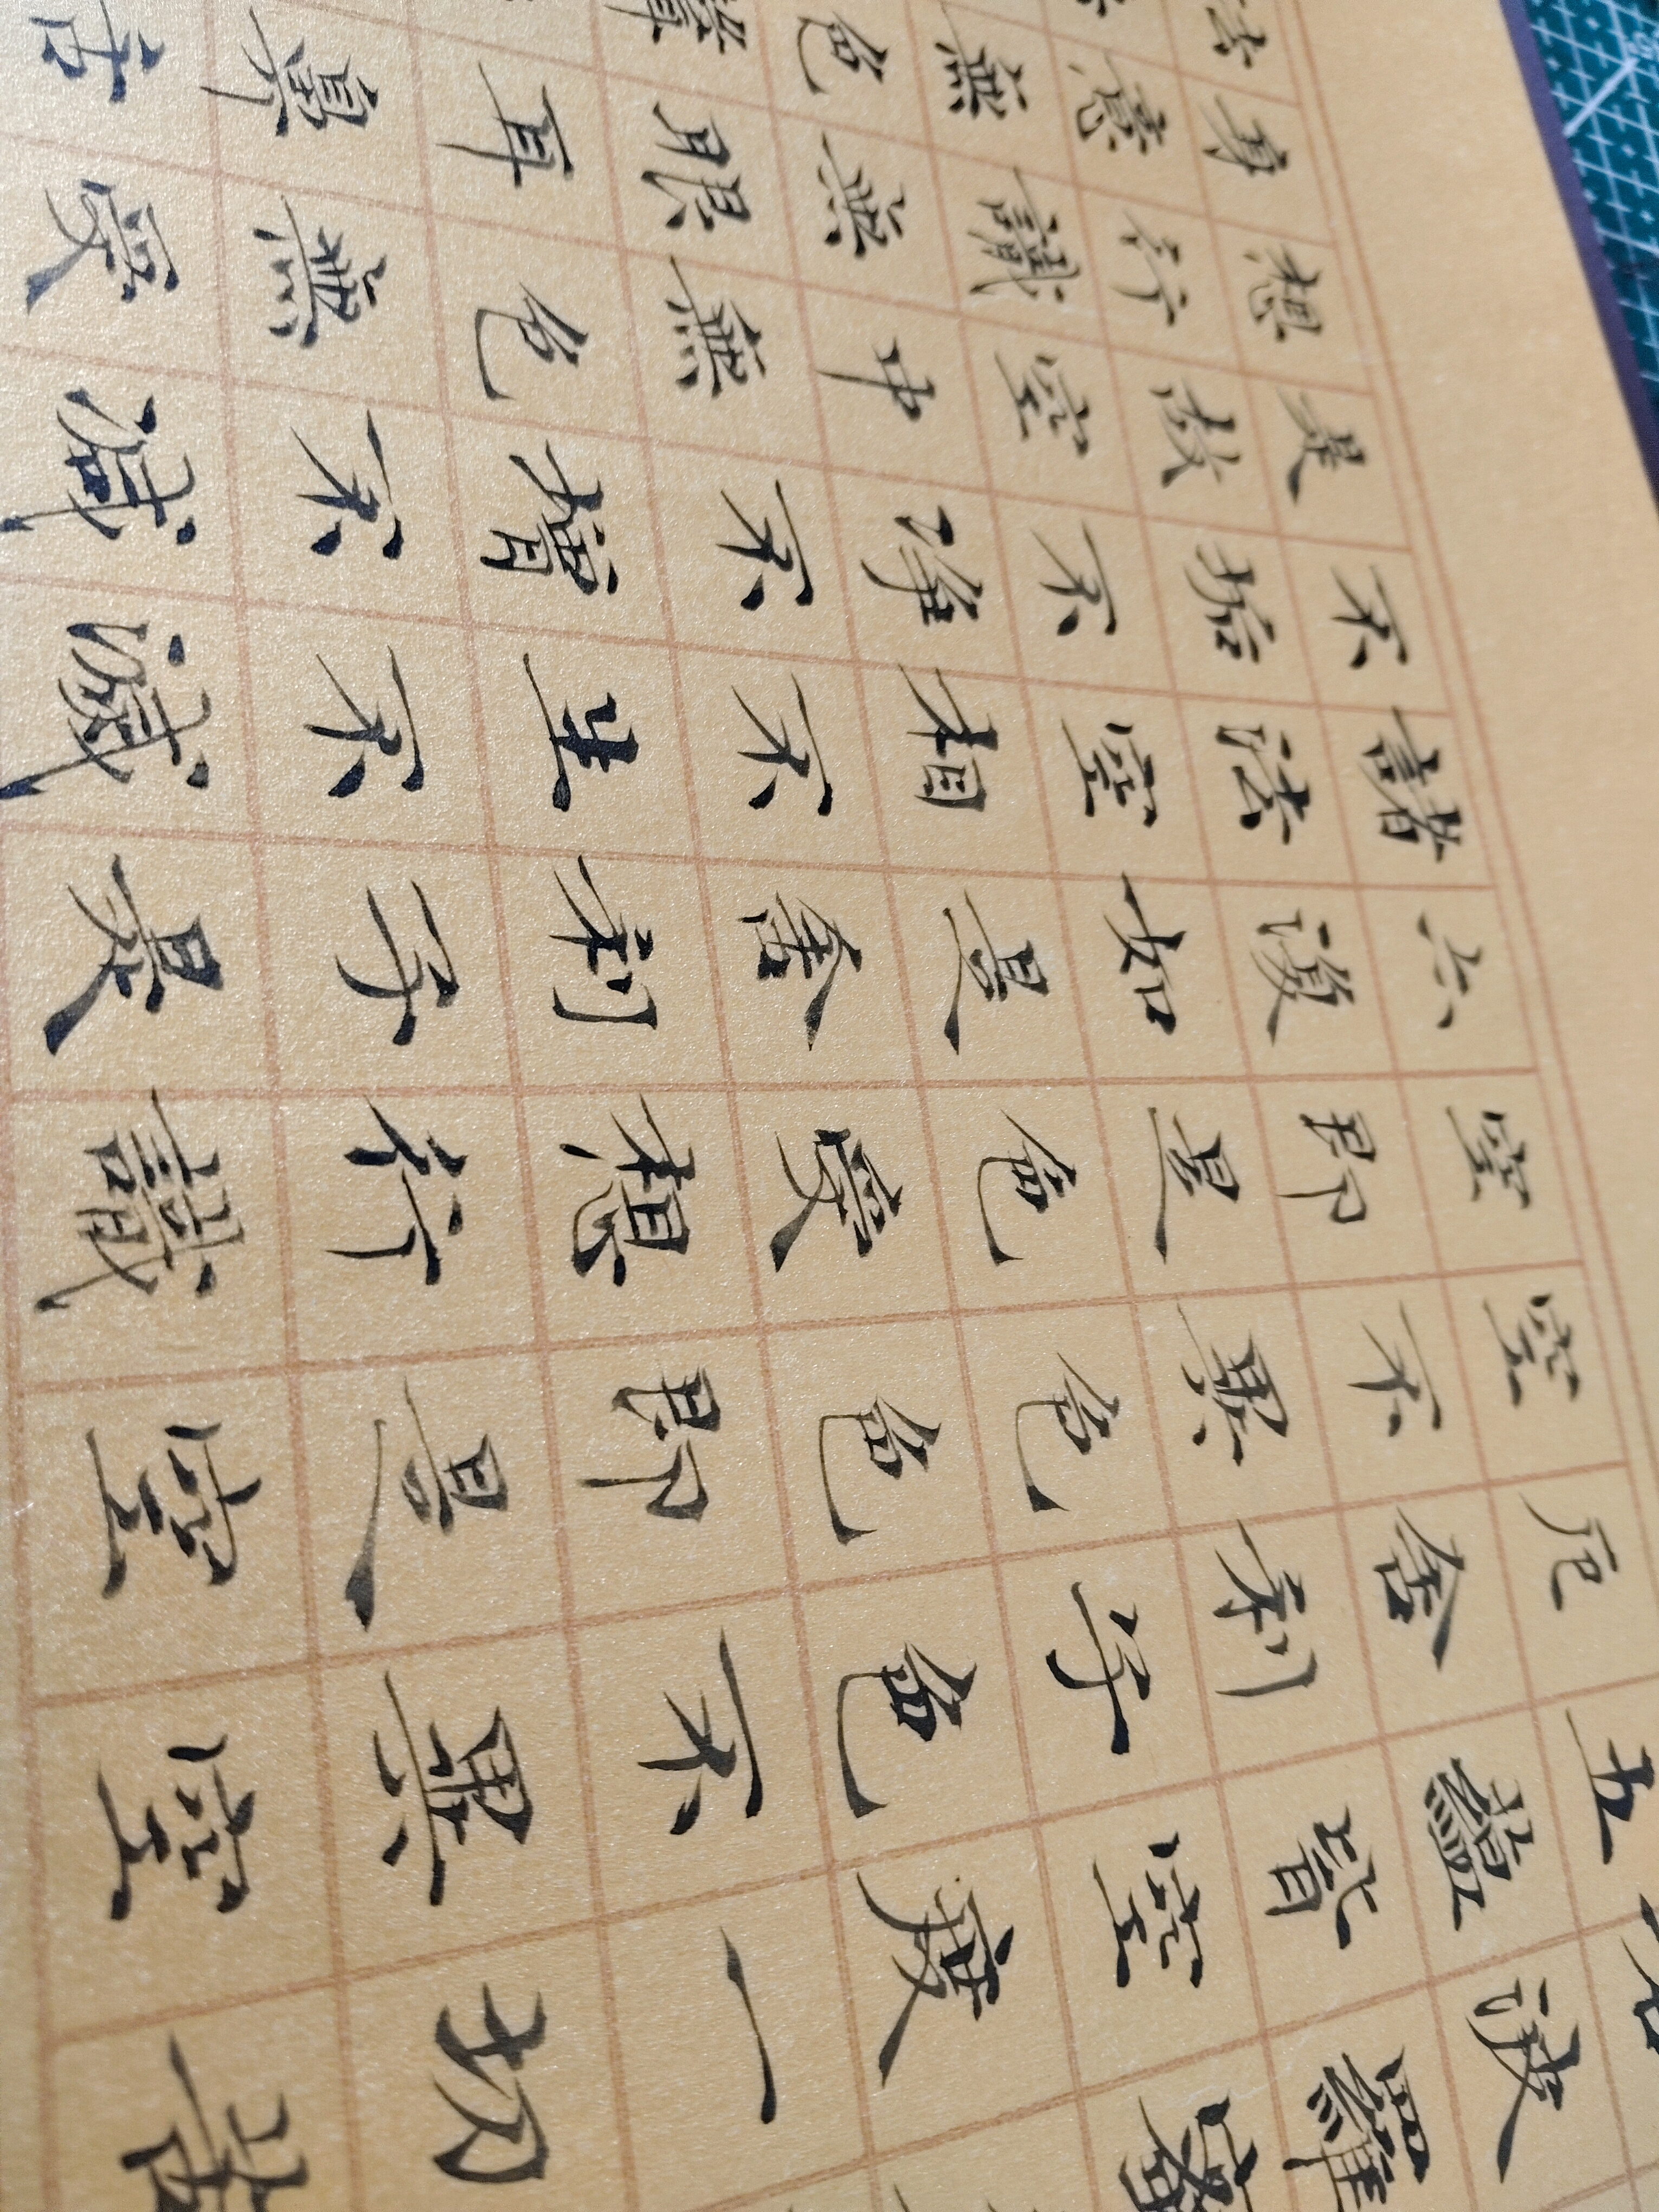 若波羅蜜
五蘊皆空度一切苦
厄舍利子色不異空
空不異色色即是空
空即是色受想行識
亦復如是舍利子是
諸法空相不生不滅
不垢不净不增不減
是故空中無色無受
想行識無眼耳鼻舌
身意無色聲
法